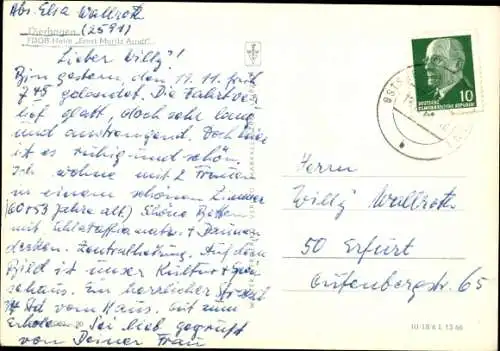 Abs. Elsa Wallroth
(2591)
Dierhagen
FDGB-Heim „Ernst Moritz Arndt“
Lieber Willy!
Bin gestern, den 11.11. früh
7 45 gelandet. Die Fahrt ver-
lief glatt, doch sehr lang
und anstrengend. Doch hier
ist es ruhig und schön.
Ich wohne mit 2 Frauen
in einem schönen Zimmer
(60+53 Jahre alt) Schöne Betten
mit Schlaraffiamatr. + Daunen-
decken. Zentralheizung. Auf dem
Bild ist unser Kultur + Spei-
sehaus. Ein herrlicher Strand
Std vom Haus. Gut zum
Erholen. Sei lieb gegrüßt
von Deiner Frau
10
DEUTSCHE
DEMOKRATISCHE REPUBLIK
Herrn
Willy Wallroth
50 Erfurt
Gutenbergstr. 65